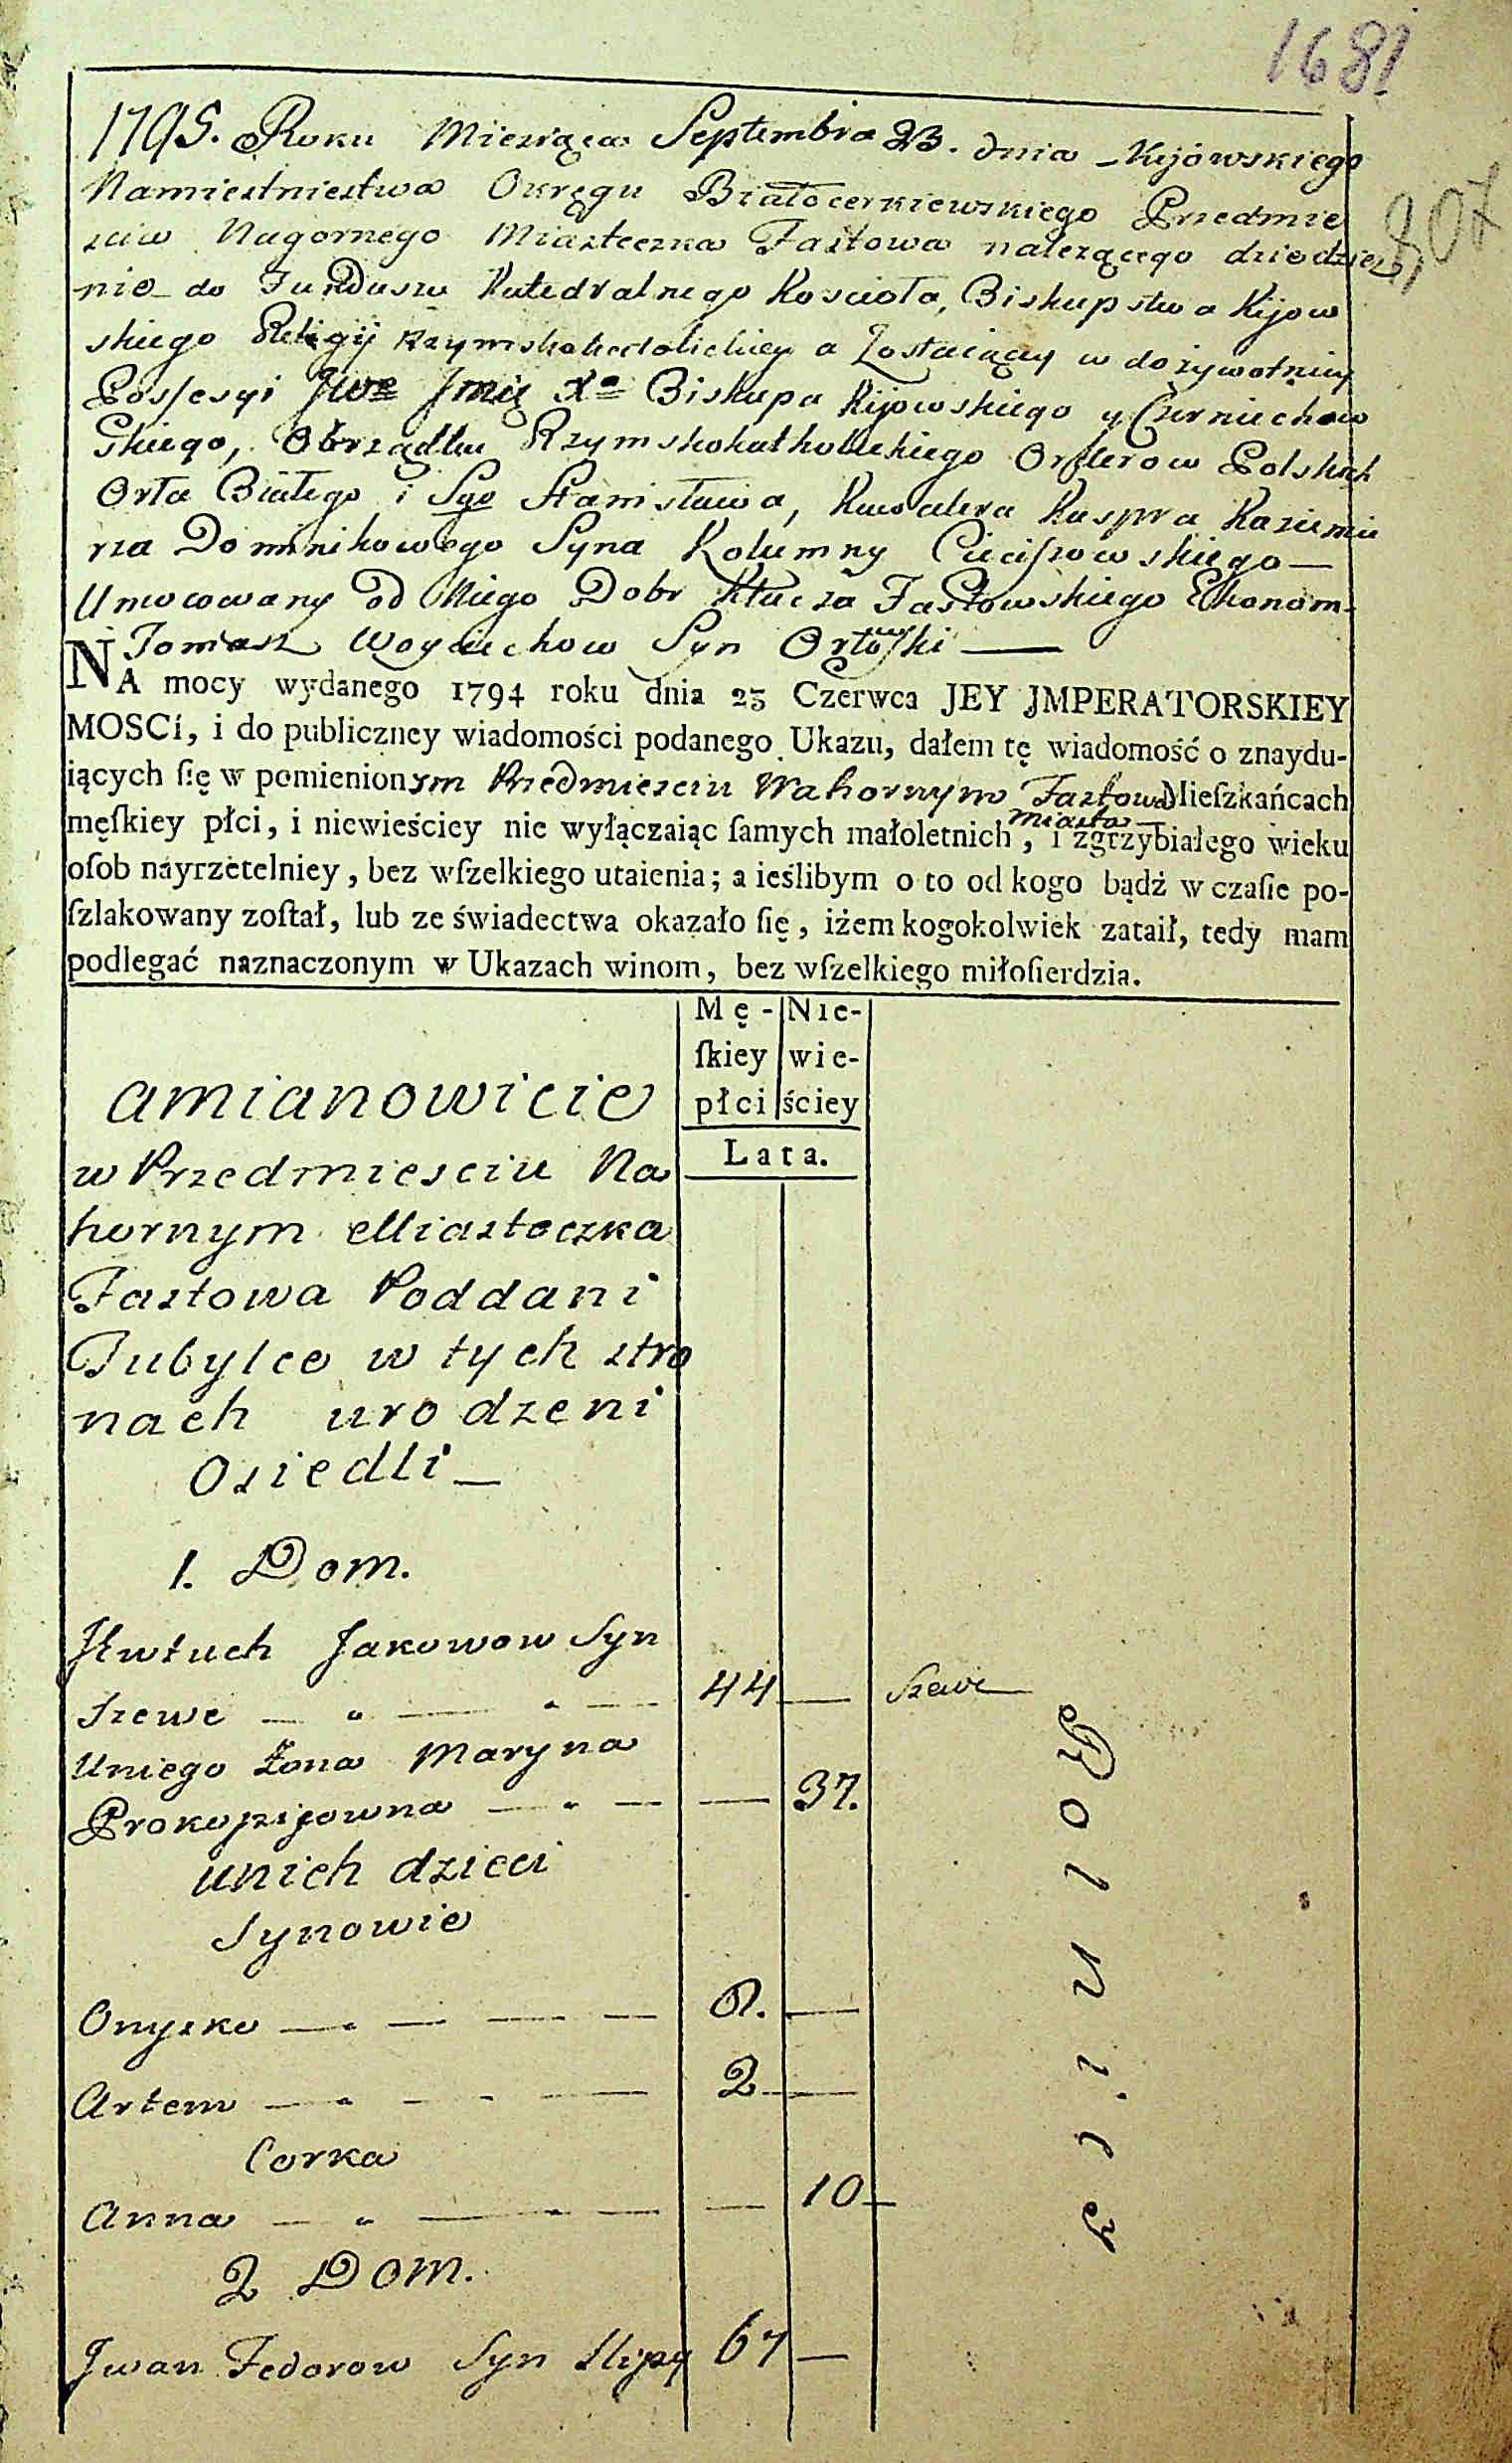 1681
807
1795. Roku Miesiąca Septembra 23. dnia Kijowskiego
Namiestnictwa Okręgu Białocerkiewskiego Przedmie
scia Nagornego Miasteczka Fastowa należącego dziedzicz
nie do Funduszu Katedralnego Kościoła, Biskupstwa Kijow
skiego Religij Rzymskokatolickiey a Zostaiący w dożywotniey
Possesyi JWo Jmię Xa Biskupa Kijowskiego y Czerniechow
skiego, Obrządku Rzymskokathollickiego Orderow Polskich
Orła Białego i Sgo Stanisława, Kawalera Kaspra Kazimie
rza Dominikowego Syna Kolumny Cieciszowskiego —
Umocowany od Niego Dobr Klucza Fastowskiego Ekonom.
Tomasz Woyciechow Syn Orłowski —
NA mocy wydanego 1794 roku dnia 23 Czerwca JEY JMPERATORSKIEY
MOSCi, i do publiczney wiadomości podanego Ukazu, dałem tę wiadomość o znaydu-
iących ſię w pomienionym Przedmiesciu Nahornym Fastowa Mieſzkańcach
miasta
męſkiey płci, i niewieściey nie wyłączaiąc ſamych małoletnich, i zgrzybiałego wieku
oſob nayrzetelniey, bez wſzelkiego utaienia; a ieślibym o to od kogo bądź w czaſie po-
ſzlakowany zoſtał, lub ze świadectwa okazało ſię, iżem kogokolwiek zataił, tedy mam
podlegać naznaczonym w Ukazach winom, bez wſzelkiego miłoſierdzia.
Mę- Nie-
ſkiey wie-
płci ściey
Lata.
amianowicie
w Przedmiesciu Na
hornym Miasteczka
Fastowa Poddani
Tubylce w tych stro
nach urodzeni
Osiedli —
1. Dom.
Jakowow Syn
Szewc — 44 — Szewc
Uniego Żona Maryna
Prokopijowna — — 37.
unich dzieci
Synowie
Onysko —
Artem — 2 —
Corka
Anna — — 10 —
2 Dom.
Jwan Fedorow Syn Slipy 67 —
Rolnicy